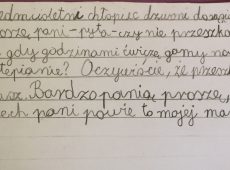 edmioletni chłopiec dzwoni do sąsi
oszę pani-pyta-czy nie przeszka
gdy godzinami ćwiczę gamy na
tepianie? Oczywiście, że przesz
asz. Bardzo panią proszę,
ech pani powie to mojej ma